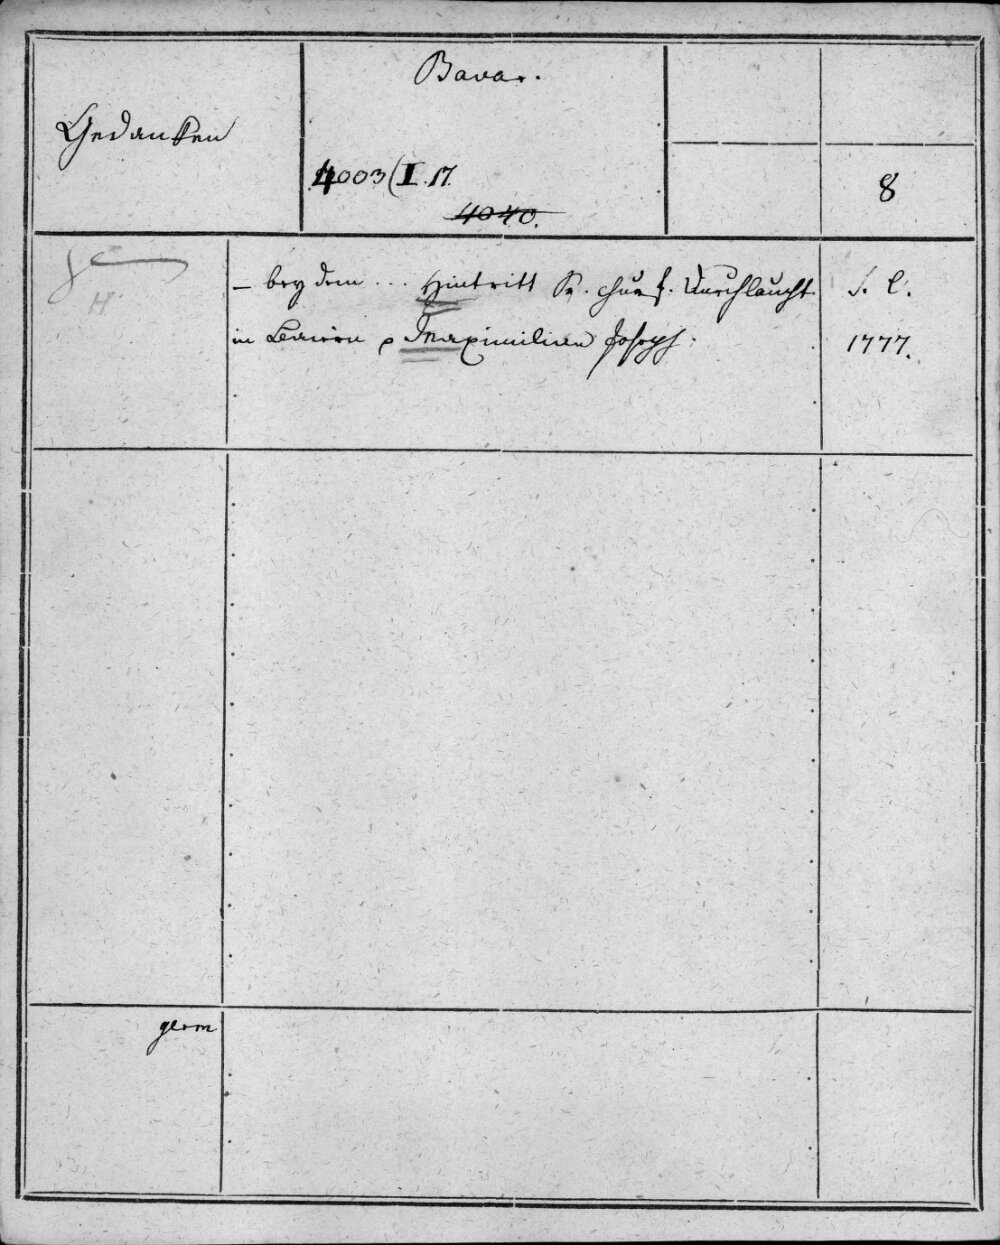 Bavar.
Gedanken
4003(I.17.
4040.
8
– bey dem ... Hintritt Sr. churf. Durchlaucht
S. l.
in Baiern Maximilian Joseph.
1777.
H
germ